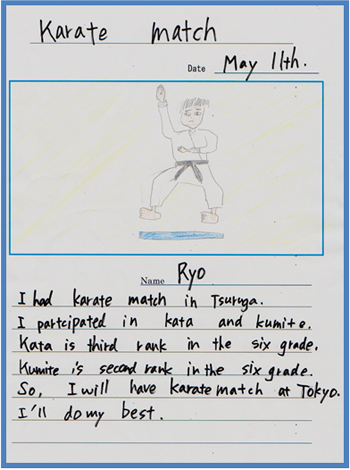 Karate match
Date May 11th.
Name Ryo
I had karate match in Tsuruga.
I partcipated in kata and kumite.
Kata is third rank in the six grade.
Kumite is second rank in the six grade.
So, I will have karate match at Tokyo.
I'll do my best.